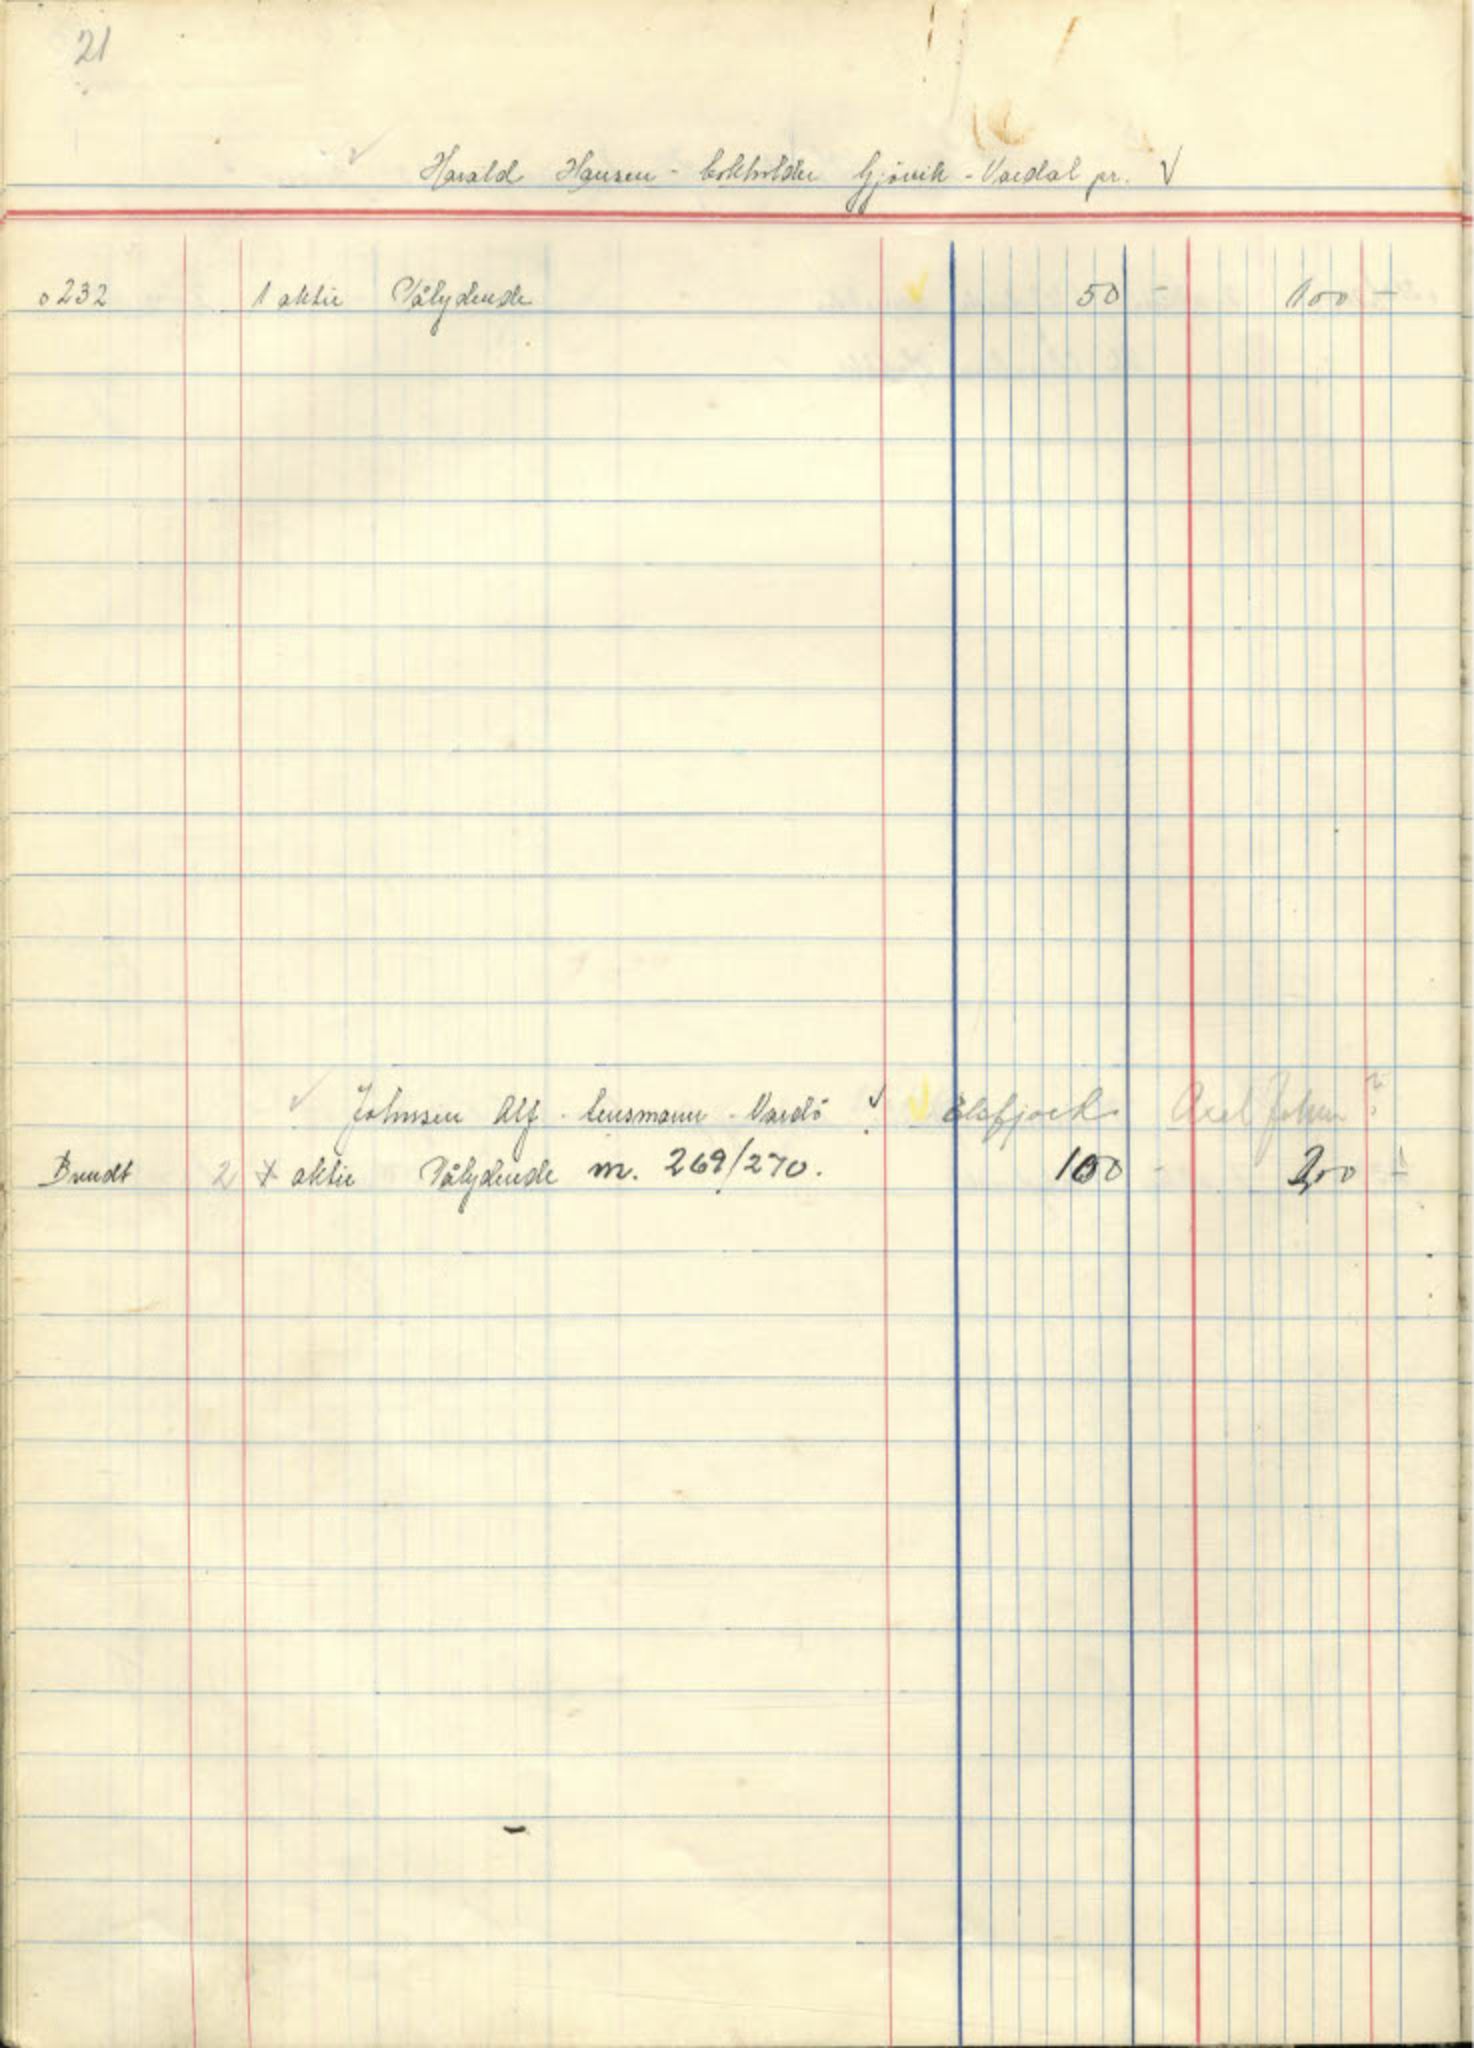 21
Harald Hansen - bokholder Gjøvik - Vardal pr.
232 1 aktie Pålydende 50 - 100 -
Johnsen Alf - lensmann - Vardö Elsfjord Axel Johnsen ?
2 aktie Pålydende m. 269/270. 100 - 200 -